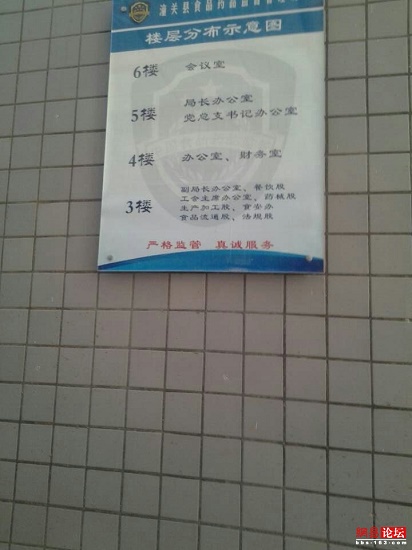 潼关县食品药品监督管理
楼层分布示意图
6楼 会议室
5楼 局长办公室
党总支书记办公室
4楼 办公室、财务室
3楼 副局长办公室、餐饮股
工会主席办公室、药械股
生产加工股、食安办
食品流通股、法规股
严格监管 真诚服务
网易论坛
bbs.163.com